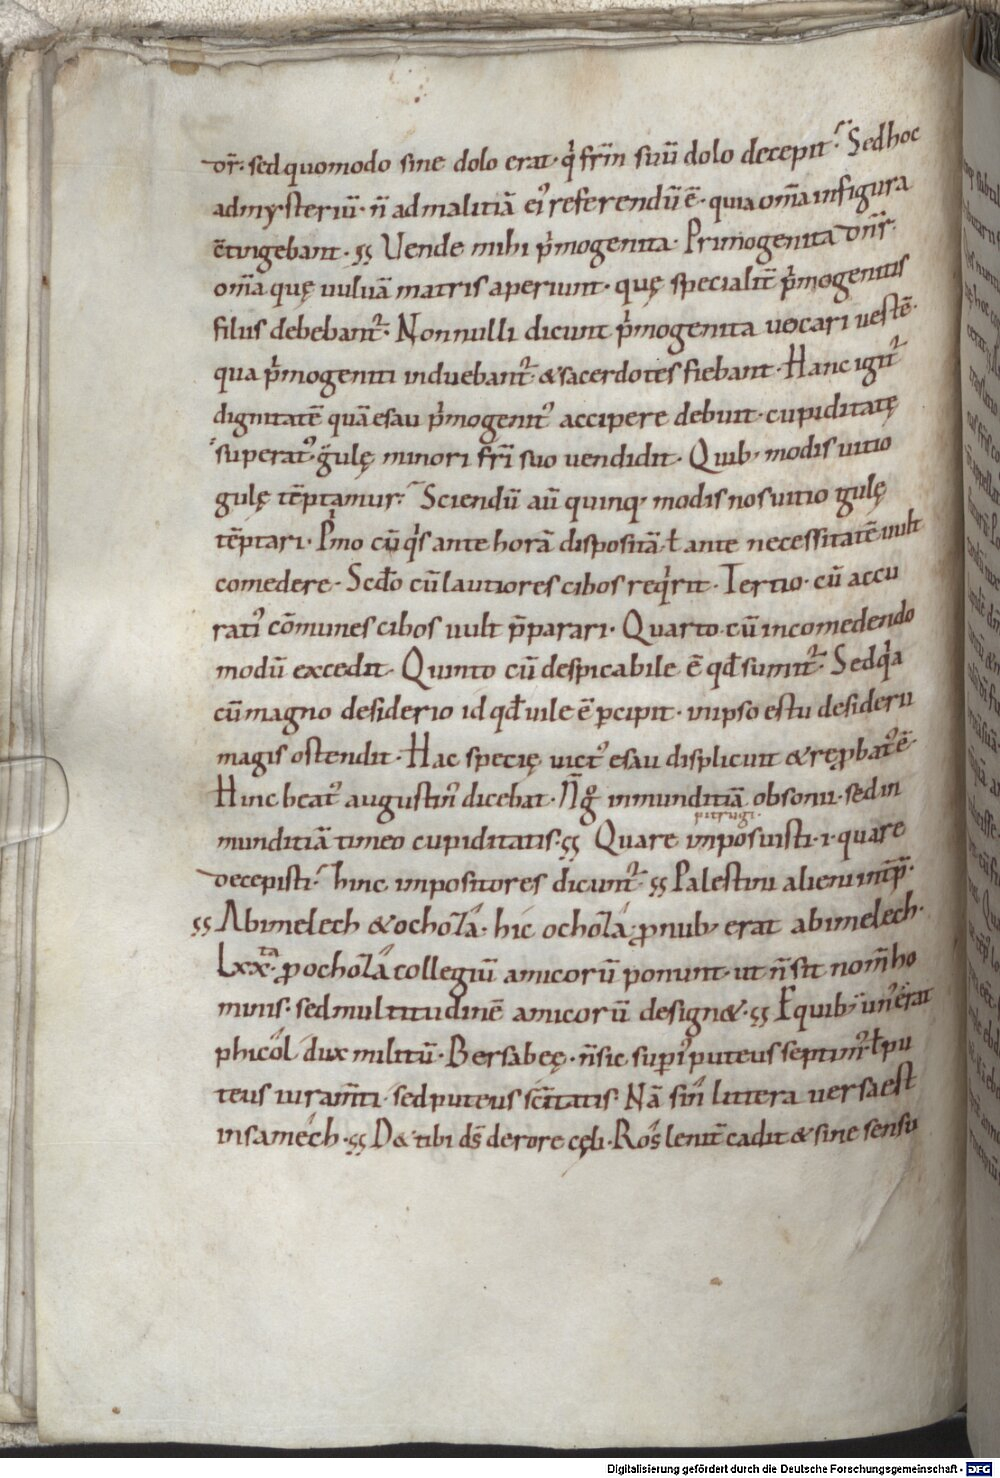 or̄· sed quomodo sine dolo erat· q̇ fr̄m suū dolo decepit· Sed hoc
ad mysteriū· n̄ ad malitiā eiꝰ referendū ē· quia om̄a in figura
ctingebant· ss Uende mihi p̍mogenita· Primogenita dn̄r·
om̄a quę uuluā matris aperiunt· quę specialit̄ p̍mogenitis
filiis debebant᷑· Nonnulli dicunt p̍mogenita uocari uestē·
qua p̍mogeniti induebant᷑· & sacerdotes fiebant· Hanc igit᷑
dignitatē quā esau p̍mogenitꝰ accipere debuit· cupiditatę
superatꝰ gulę minori fr̄i suo uendidit· Quib; modis uitio
gulę tēptamur· Sciendū aū quinq; modis nos uitio gulę
tēptari· P̍mo cū q̍s ante horā dispositā· ł ante necessitatē uult
comedere· Scd̄o cū lautiores cibos req̍rit· Tertio· cū accu
ratiꝰ cōmunes cibos uult p̄parari· Quarto· cū in comedendo
modū excedit· Quinto cū despicabile ē qd̄ sumit᷑· Sed q̍a
cū magno desiderio id qd̄ uile ē ꝑcipit· in ipso estu desiderii
magis ostendit· Hac specię uictꝰ esau displicuit & ręꝓbatꝰ ē·
Hinc beatꝰ augustinꝰ dicebat· N̄ g̊ inmunditiā obsonii· sed in
pitrugi·
munditiā timeo cupiditatis· ss Quare imposuisti· i· quare
decepisti· hinc impositores dicunt᷑· ss Palestini alieni int̄p̄·
ss Abimelech & ochoz̄ā· hic ochoz̄ā· ꝓnub; erat abimelech·
Lxxta· ꝓ ochoz̄ā collegiū amicorū ponunt· ut n̄ sit nom̄ ho
minis· sed multitudinē amicorū design&· ss E quib; unꝰ erat
phicol dux militū· Bersabeę· n̄ sic supiꝰ puteus septimꝰ· ł pu
teus iuram̄ti· sed puteus sc̄itatis· Nā sin littera uersa est
in samech· ss D& tibi ds̄ de rore cęli· Ros lenit̄ cadit & sine sensu
Digitalisierung gefördert durch die Deutsche Forschungsgemeinschaft - DFG